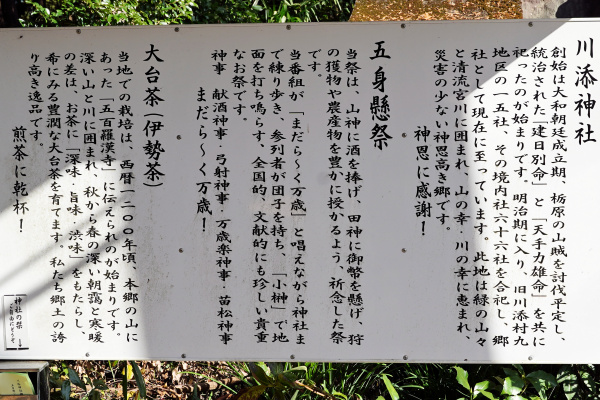 川添神社
創始は大和朝廷成立期、栃原の山賊を討伐平定し、
統治された「建日別命」と「天手力雄命」を共に
祀ったのが始まりです。明治期に入り、旧川添村九
地区の一五社、その境内社六十六社を合祀し、郷
社として現在に至っています。此地は緑の山々
と清流宮川に囲まれ、山の幸、川の幸に恵まれ、
災害の少ない神恩高き郷です。
神恩に感謝！
五身懸祭
当祭は、山神に酒を捧げ、田神に御幣を懸げ、狩
の獲物や農産物を豊かに授かるよう、祈念した祭
です。
当番組が、「まだら〜く万歳」と唱えながら神社ま
で練り歩き、参列者が団子を持ち、「小榊」で地
面を打ち鳴らす、全国的、文献的にも珍しい貴重
なお祭です。
神事　献酒神事・弓射神事・万歳楽神事・苗松神事
まだら〜く万歳！
大台茶（伊勢茶）
当地での栽培は、西暦一二〇〇年頃、本郷の山に
あった「五百羅漢寺」に伝えられのが始まりです。
深い山と川に囲まれ、秋から春の深い朝靄と寒暖
の差は、お茶に「深味・旨味・渋味」をもたらし、
希にみる豊潤な大台茶を育てます。私たち郷土の誇
り高き逸品です。
煎茶に乾杯！
神社の祭